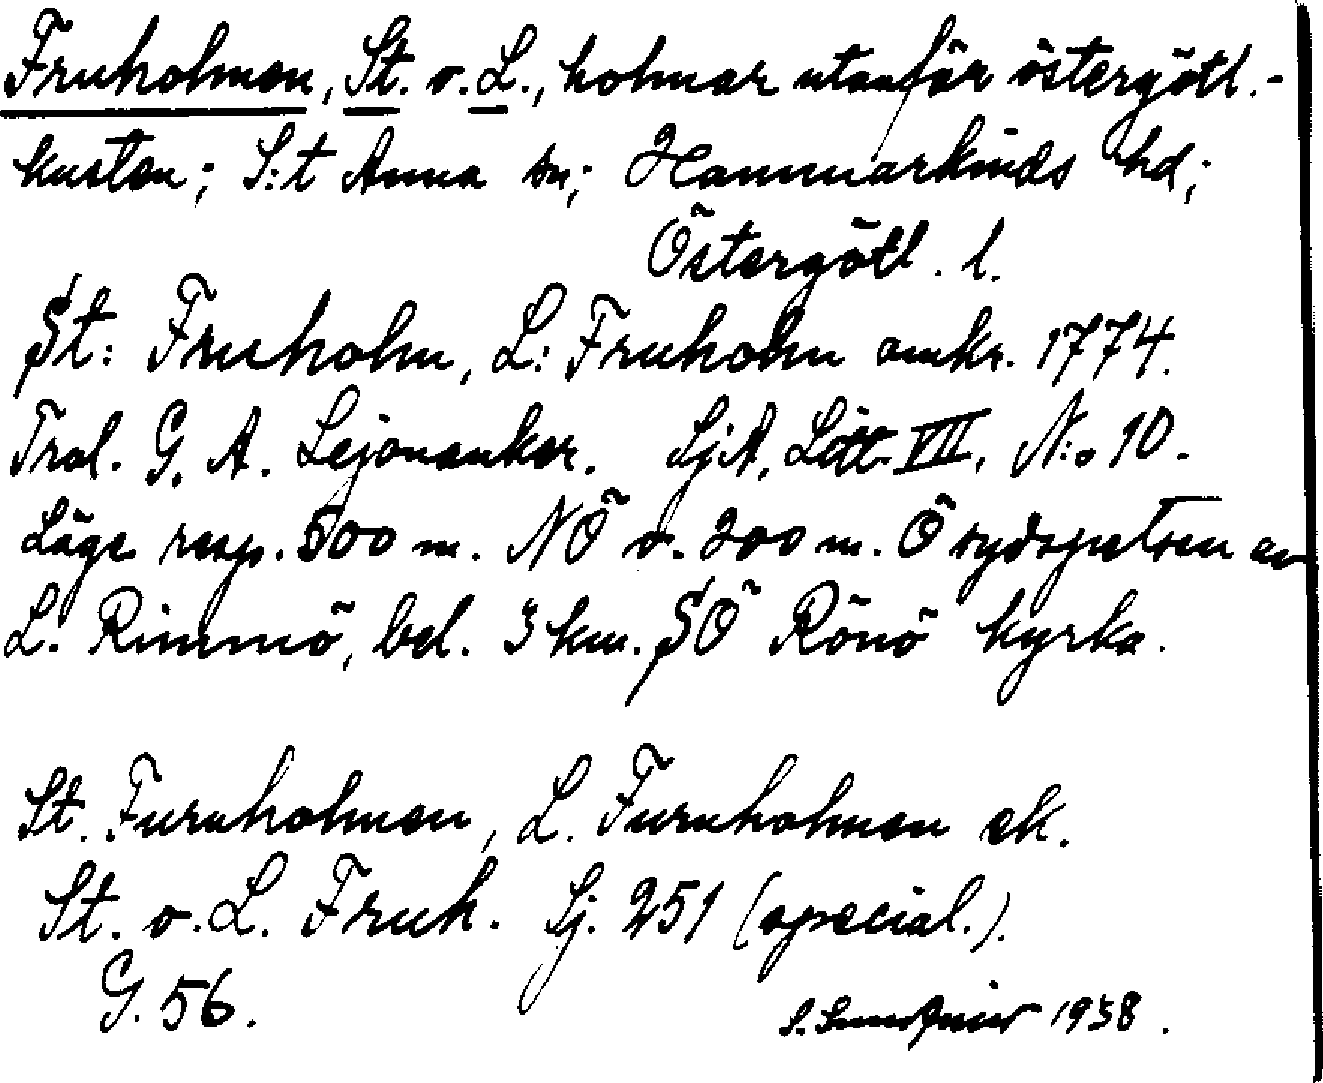 Fruholmen, St. o. L., holmar utanför östergötl.-
kusten; S:t Anna sn; Hammarkinds hd;
Östergötl. l.
St: Fruholm, L: Fruholm omkr. 1774.
Trol. G. A. Lejonanker. SjA, Litt. VII, N:o 10.
Läge resp. 500 m. NÖ o. 200 m. Ö sydspetsen av
L. Rimmö, bel. 3 km. SÖ Rönö kyrka.
St. Furuholmen, L. Furuholmen ek.
St. o. L. Fruh. Sj. 251 (special.).
G. 56.
S. 1938.